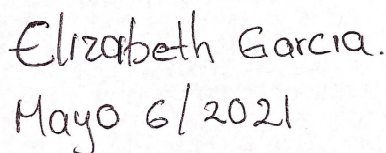 Elizabeth Garcia.
Mayo 6/2021